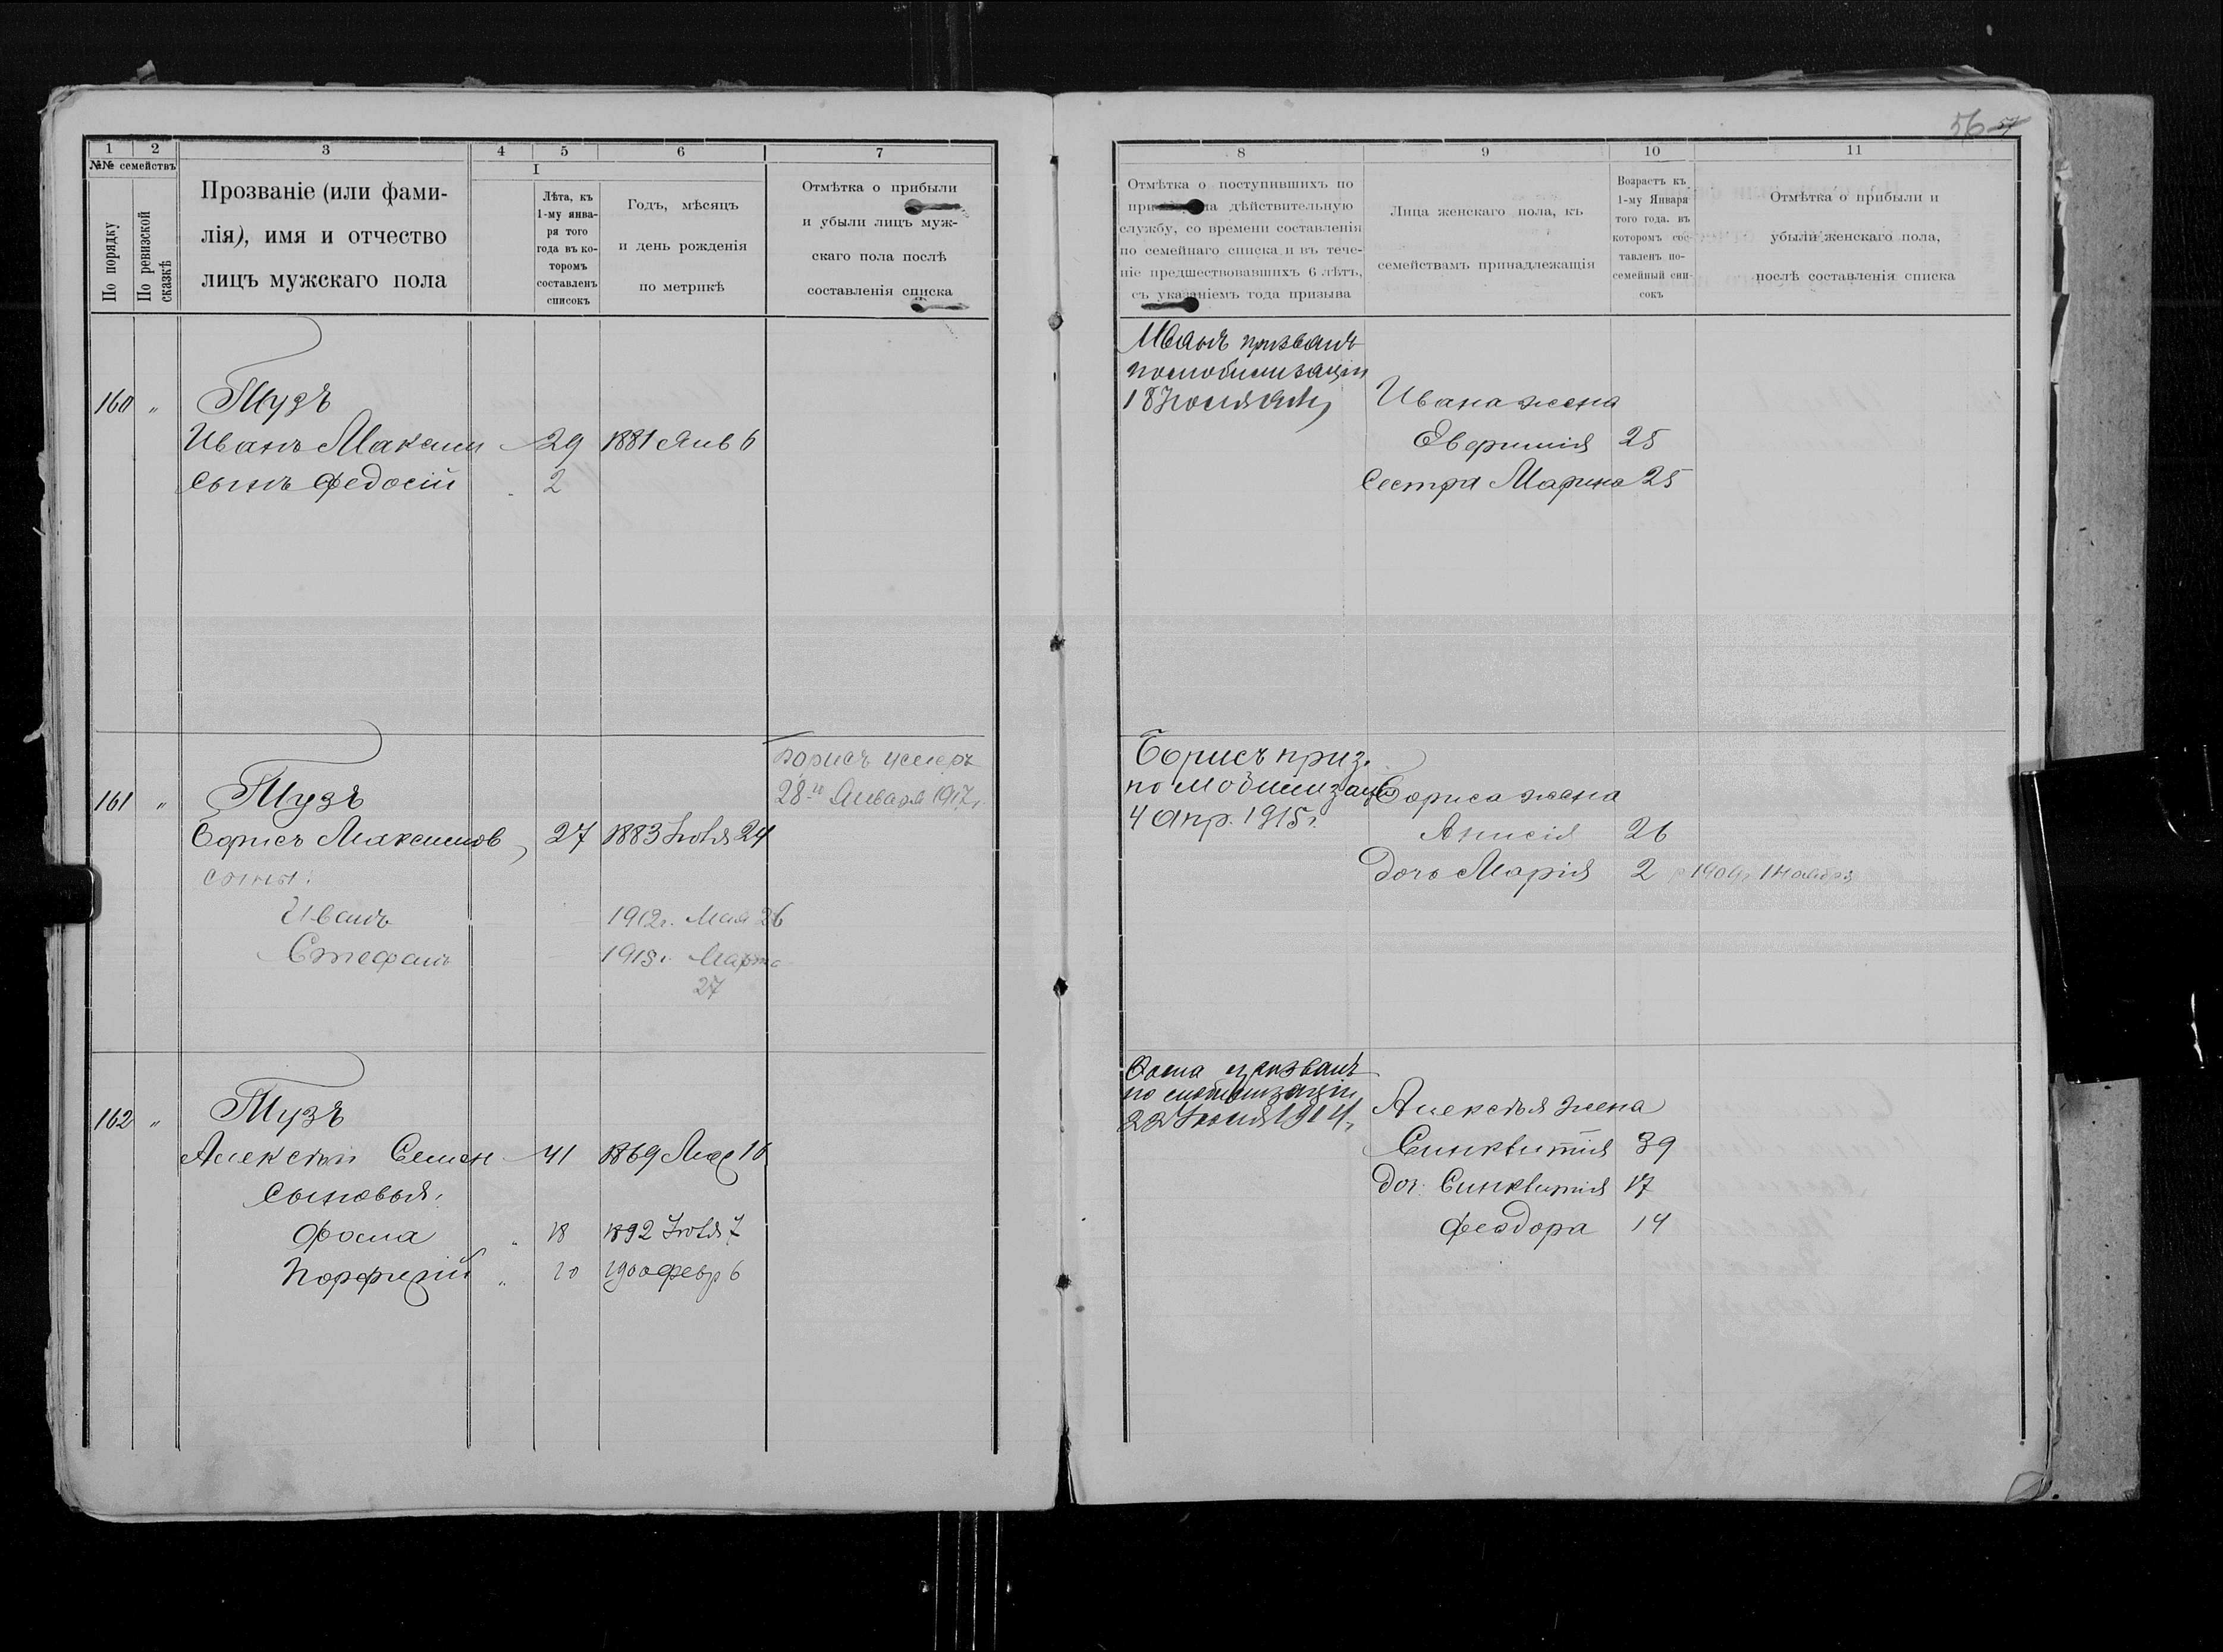 56 57
1 2 3 4 5 6 7
№№ семействъ
По порядку
По ревизской сказкѣ
Прозваніе (или фами-
лія), имя и отчество
лицъ мужскаго пола
I
Лѣта, къ
1-му янва-
ря того
года въ ко-
торомъ
составленъ
списокъ
Годъ, мѣсяцъ
и день рожденія
по метрикѣ
Отмѣтка о прибыли
и убыли лицъ муж-
скаго пола послѣ
составленія списка
160 " Тузъ
Иванъ Максим 29 1881 Янв 6
сынъ Федосій " 2
Борисъ умеръ
28-го Января 1917г.
161 " Тузъ
Борисъ Максимов 27 1883 Іюля 24
сыны:
Иванъ 1912г. Мая 26
Стефанъ 1915г. Марта
27
162 " Тузъ
Алексѣй Семен 41 1869 Мар 16
Сыновья:
Фома " 18 1892 Іюля 7
Порфирій " 10 1900 Февр 6
8 9 10 11
Отмѣтка о поступившихъ по
на дѣйствительную
службу, со времени составленія
по семейнаго списка и въ тече-
ніе предшествовавшихъ 6 лѣтъ,
съ указаніемъ года призыва
Лица женскаго пола, къ
семействамъ принадлежащія
Возрастъ къ
1-му Января
того года. въ
которомъ сос-
тавленъ по-
семейный спи-
сокъ
Отмѣтка о прибыли и
убыли женскаго пола,
послѣ составленія списка
Иванъ призванъ
по мобилизаціи
18 Іюля
Ивана жена
Евфимія 25
Сестра Марина 25
Борисъ приз.
по мобилизаціи
4 Апр. 1915г.
Бориса жена
Анисія 26
Дочь Марія 2 р 1909г 1 Ноября
Фома призванъ
по мобилизаціи
22 Іюля 1914г.
Алексѣя жена
Синклитія 39
Доч: Синклитія 17
Феодора 14